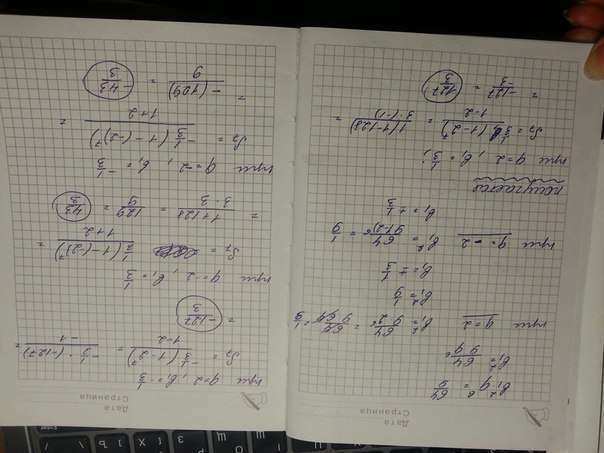 Дата
Страница
b₁² q⁶ = 64/9
b₁² = 64/9q⁶
при q=2 b₁² = 64/9·2⁶ = 64/9·64 = 1/9
b₁² = 1/9
b₁ = ± 1/3
при q=-2 b₁² = 64/9(-2)⁶ = 1/9
b₁ = ± 1/3
получается
при q=2, b₁ = 1/3;
S₇ = 1/3(1-2⁷)/1-2 = 1(1-128)/3·(-1) =
= -127/-3 = 127/3
Дата
Страница
при q=2, b₁ = -1/3
S₇ = -1/3(1-2⁷)/1-2 = -1/3·(-127)/-1 =
= -127/3
при q=-2, b₁ = 1/3
S₇ = 1/3(1-(-2)⁷)/1+2 =
= 1+128/3·3 = 129/9 = 43/3
при q=-2, b₁ = -1/3
S₇ = -1/3(1-(-2)⁷)/1+2 =
= -(129)/9 = -43/3